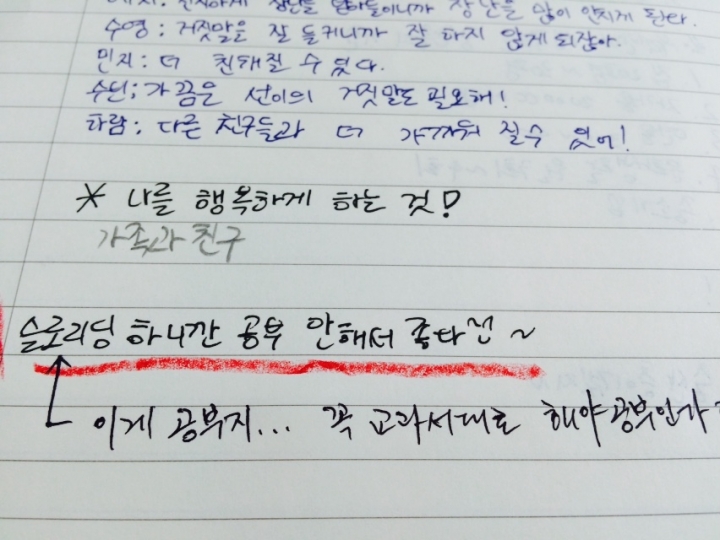 장난을 많이 안치게 된다.
수영: 거짓말은 잘 들키니까 잘 하지 않게 되잖아.
민지: 더 친해질 수 있다.
수빈; 가끔은 선이의 거짓말도 필요해!
하람: 다른 친구들과 더 가까워 질수 있어!
* 나를 행복하게 하는 것?
가족과 친구
슬로리딩 하니깐 공부 안해서 좋다 ~
이게 공부지... 꼭 교과서대로 해야 공부인가?